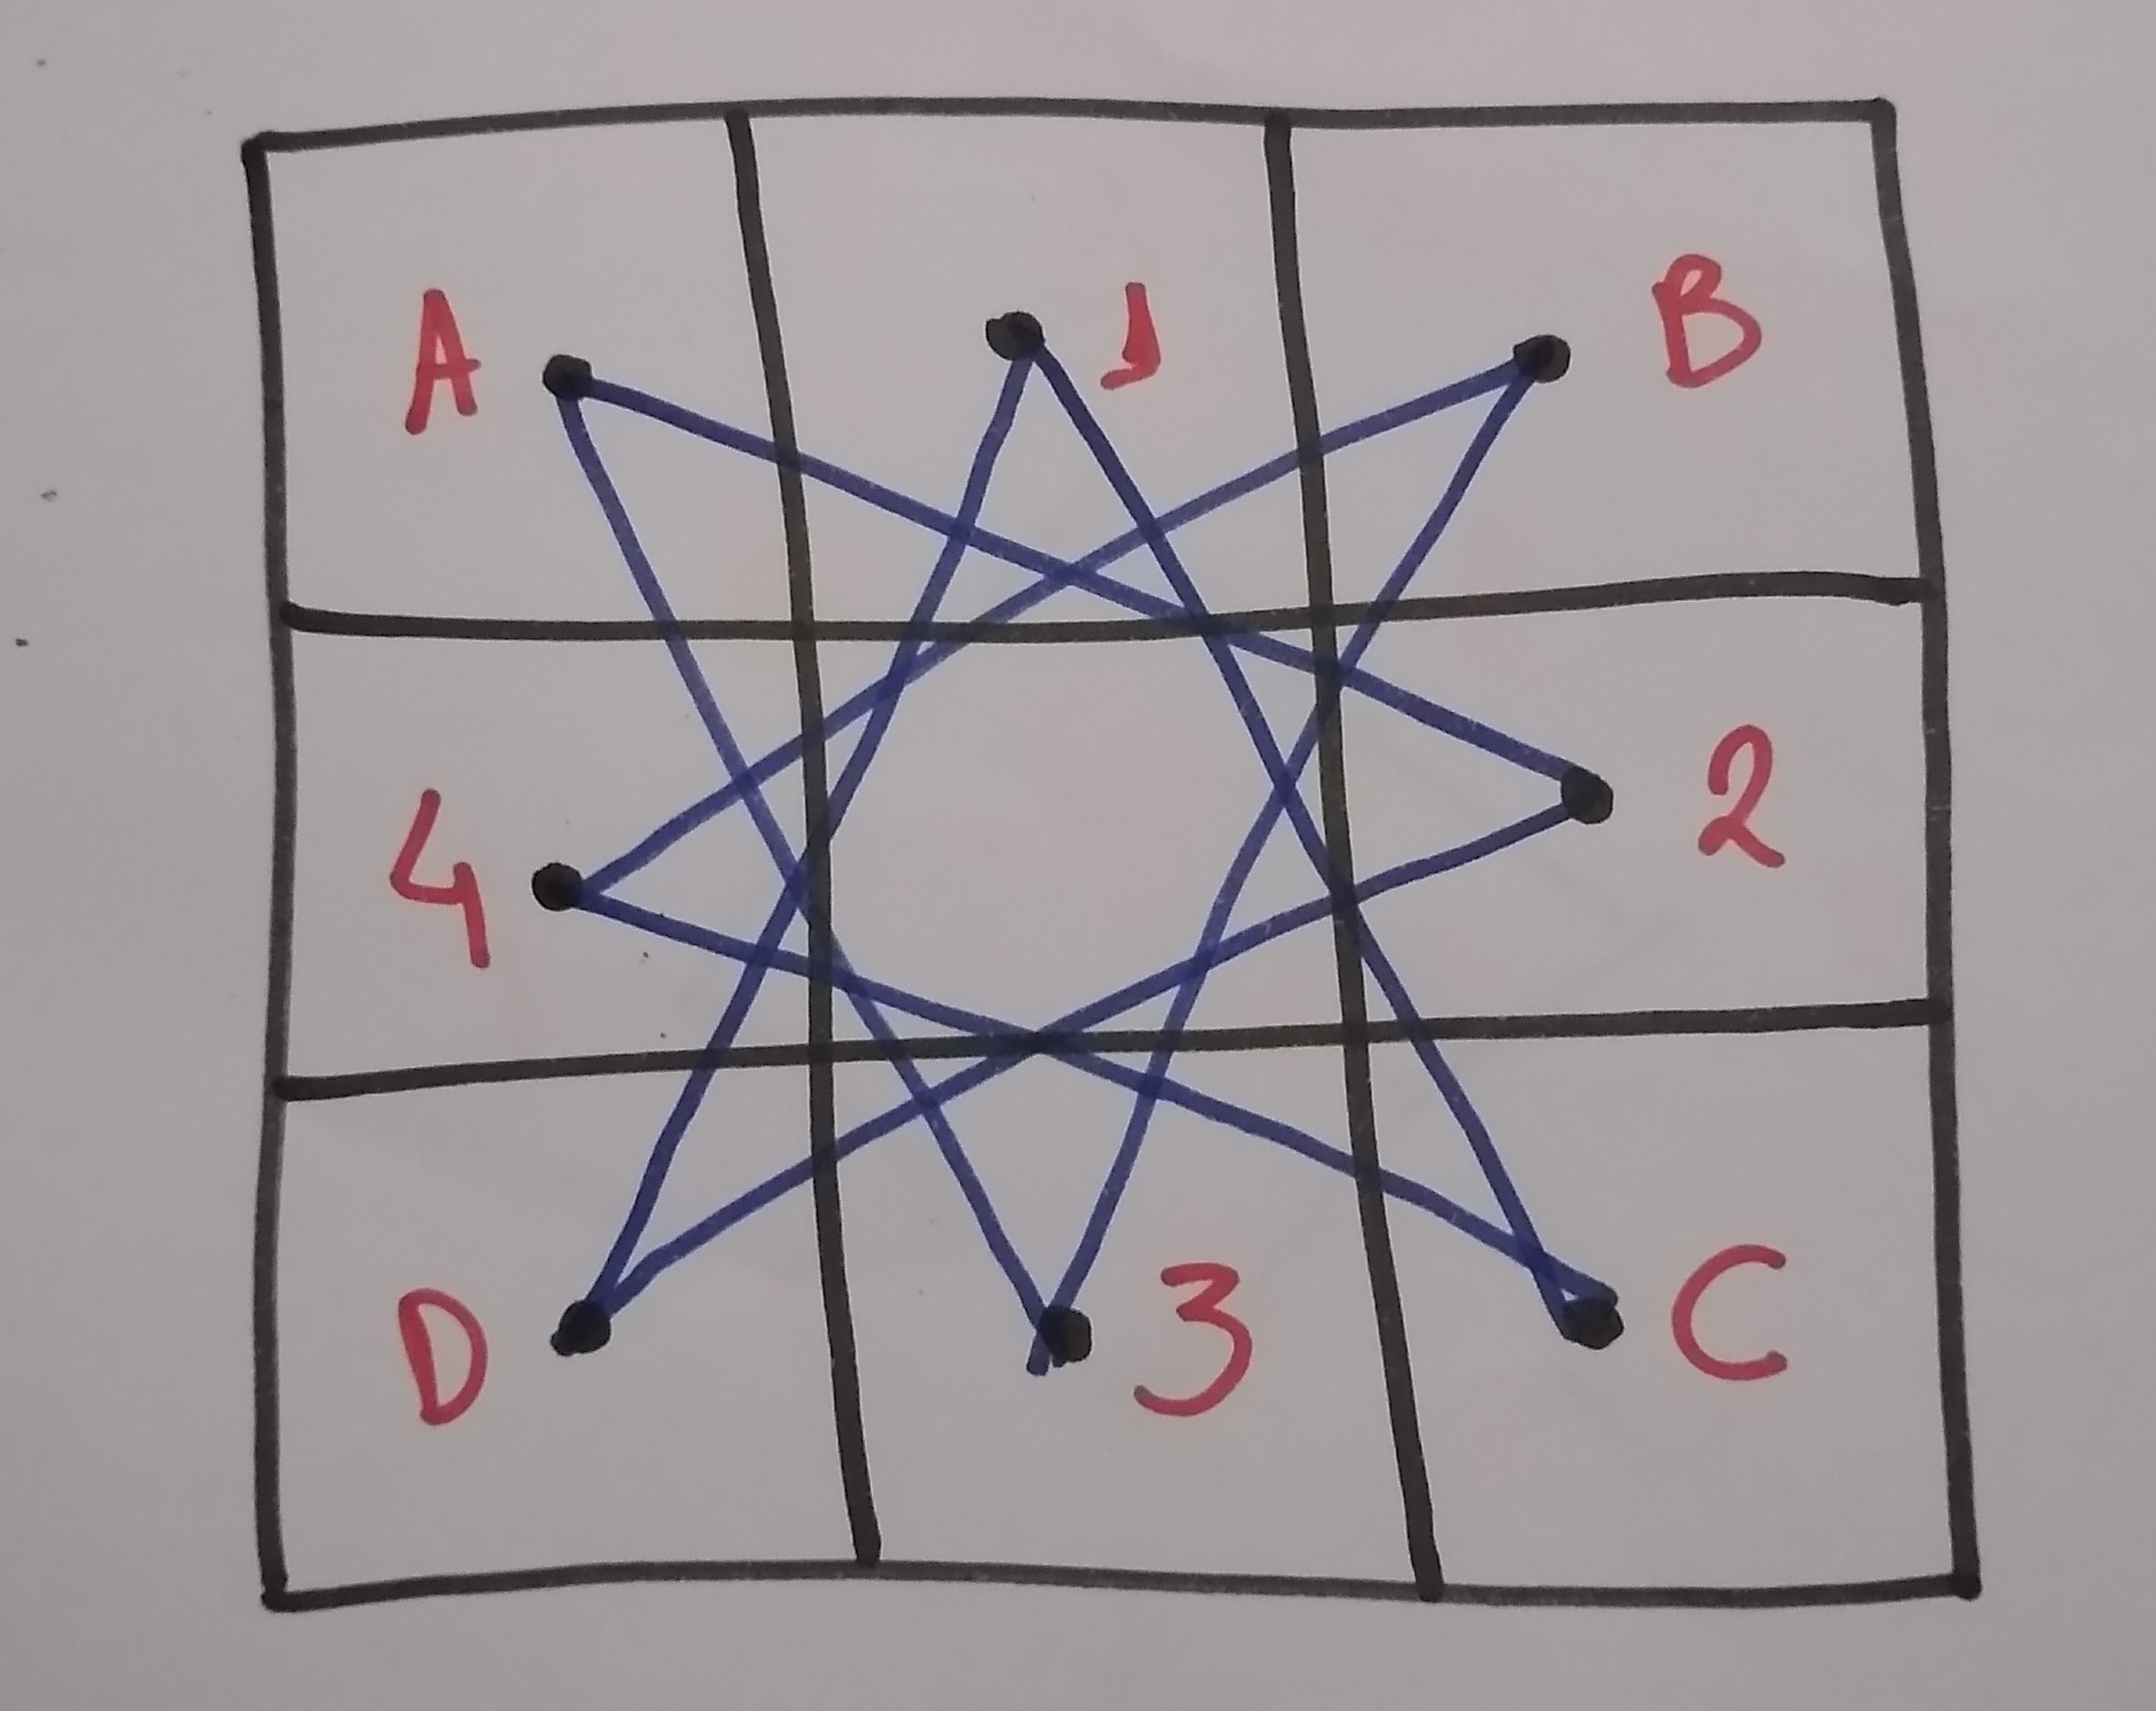 A 1 B
4 2
D 3 C